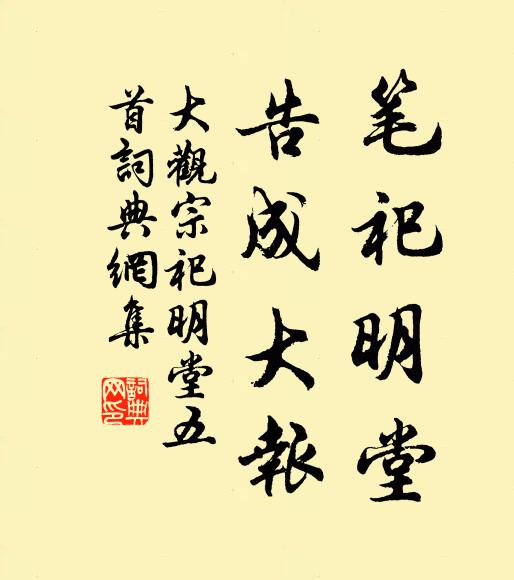 笔祀明堂
告成大報
大觀宗祀明堂五
首詞典網集
詞典网印